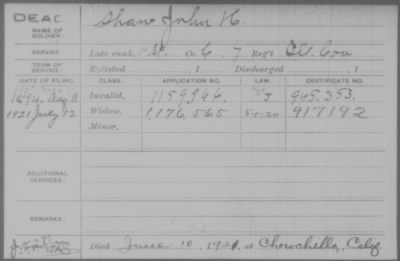 DEAD
Shaw John H.
NAME OF SOLDIER:
SERVICE: Late rank, Co. 7 Reg't Ill. Cav
TERM OF SERVICE: Enlisted , 1 Discharged , 1
DATE OF FILING. CLASS. APPLICATION NO. LAW. CERTIFICATE NO.
Aug 11 Invalid, 1159944 945.353.
1921 July 12 Widow, 1,176,565 5-1-20 917192
Minor,
ADDITIONAL SERVICES:
REMARKS:
Died June 10, 1921, at Chowchilla, Calif